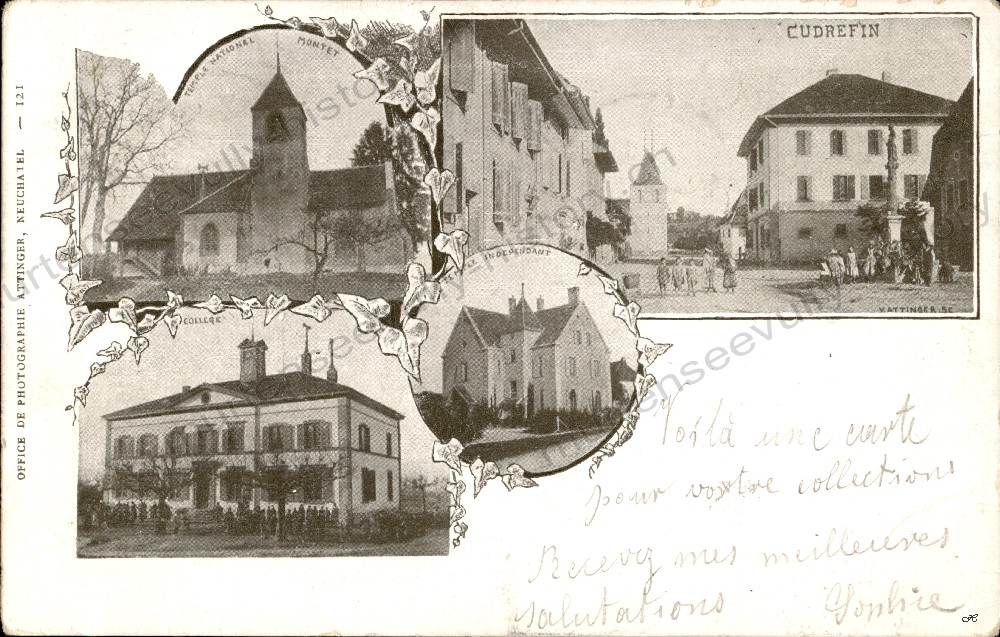 OFFICE DE PHOTOGRAPHIE ATTINGER, NEUCHATEL — 121
TEMPLE NATIONEL MONTET
CUDREFIN
V.ATTINGER.SC
INDEPENDANT
COLLEGE
Voilà une carte
pour vostre collections
Recevez mes meilleures
salutations Sophie